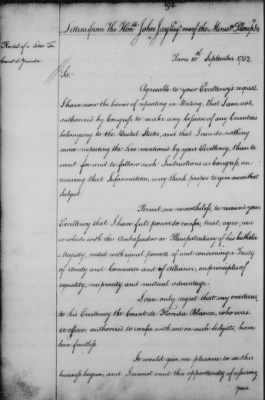 Letters from The Honble John Jay Esqr one of the Ministr Plenipo:
Recital of a Letter To
Count d'Aranda
Paris 10th September 1782
Sir,
Agreeable to your Excellency's request
I have now the honor of repeating in Writing, that I am not
authorized by Congress to make any Cession of any Countries
belonging to the United States, and that I can do nothing
more respecting the Line mentioned by your Excellency, than to
wait for and to follow such Instructions as Congress, on
receiving that Information, may think proper to give me on that
Subject.
Permit me nevertheless, to remind your
Excellency that I have full power to confer, treat, agree, and
conclude with the Ambassador or Plenipotentiary of his Catholic
Majesty, vested with equal powers of and concerning a Treaty
of Amity and Commerce and of Alliance, on principles of
equality, reciprocity and mutual advantage.
I can only regret that my overtures
to his Excellency the Count de Florida Blanca, who was
ex officio authorized to confer with me on such Subjects, have
been fruitless
It would give me pleasure to see this
business begun, and I cannot omit this opportunity of assuring
your